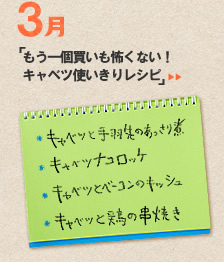 3月
「もう一個買いも怖くない！
キャベツ使いきりレシピ」
キャベツと手羽先のあっさり煮
キャベツナコロッケ
キャベツとベーコンのキッシュ
キャベツと鶏の串焼き